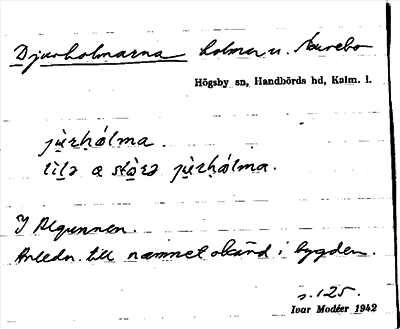 Djurholmarna holmar u.
Högsby sn, Handbörds hd, Kalm. l.
jùrhólma.
lìlə o stòrə jùrhólma.
I Algunnen.
Anledn. till namnet okänd i bygden.
s. 125.
Ivar Modéer 1942